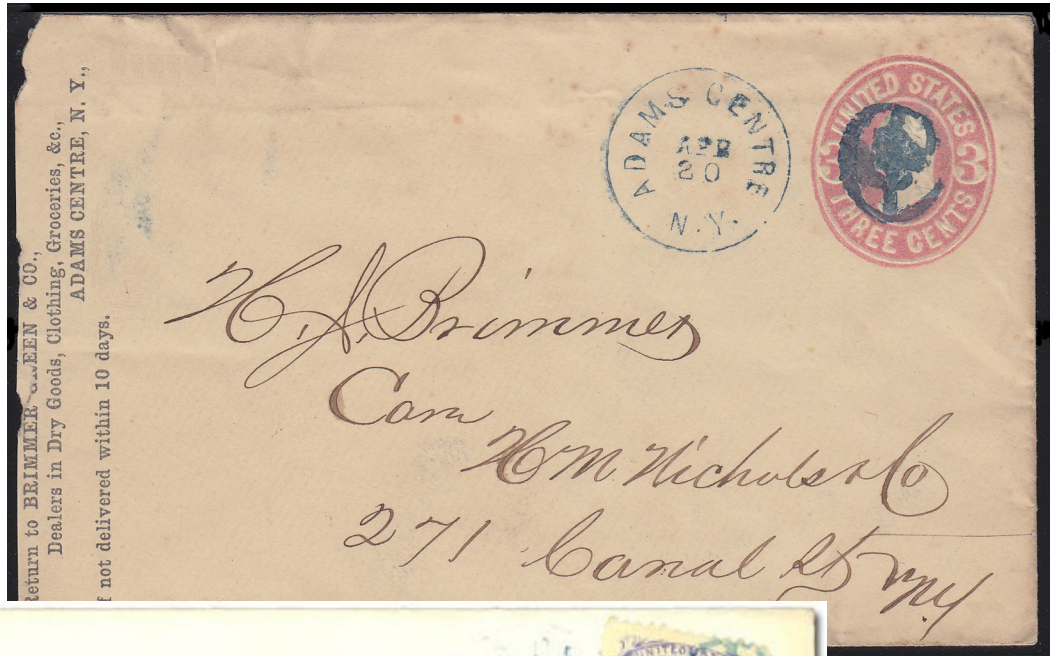 Return to BRIMMER GREEN & CO.,
Dealers in Dry Goods, Clothing, Groceries, &c.,
ADAMS CENTRE, N. Y.,
f not delivered within 10 days.
ADAMS CENTRE
APR
20
N.Y.
UNITED STATES
3 3
THREE CENTS
H. J. Brimmer
Care
H M Nichols & Co
271 Canal St NY
UNITED